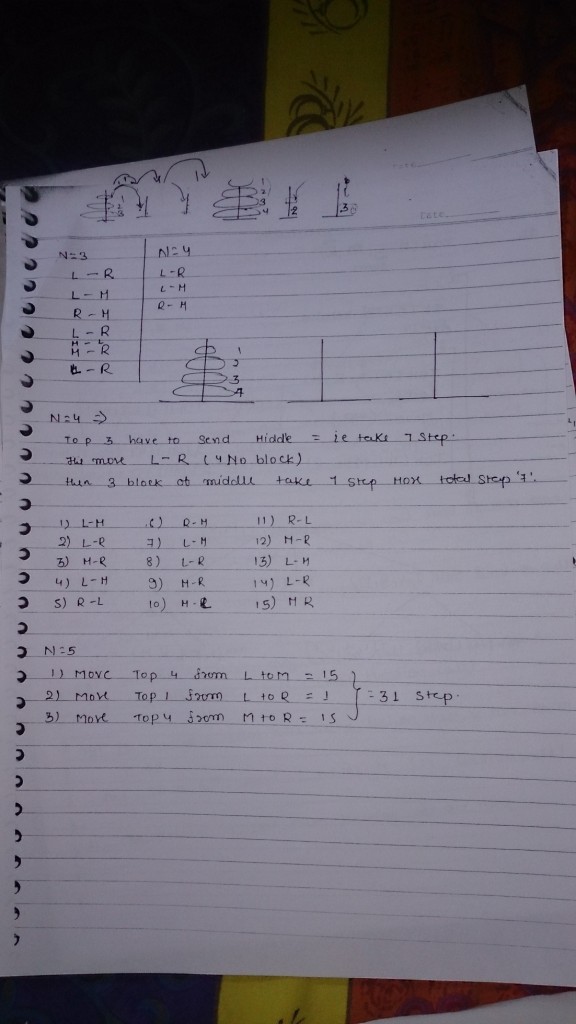 1
2
3
1
2
3
4
2
1
3
Date
N=3
L - R
L - M
R - M
L - R
M - L
M - R
L - R
N=4
L-R
L-M
R-M
1
2
3
4
N=4 ⇒
Top 3 have to send Middle = ie take 7 step.
move L-R (4 No block)
then 3 block of middle take 7 step More total step '7'.
1) L-M
2) L-R
3) M-R
4) L-M
5) R-L
6) R-M
7) L-M
8) L-R
9) M-R
10) M-L
11) R-L
12) M-R
13) L-M
14) L-R
15) M R
N=5
1) Move Top 4 from L to M = 15
2) Move Top 1 from L to R = 1
3) Move Top 4 from M to R = 15
= 31 step.